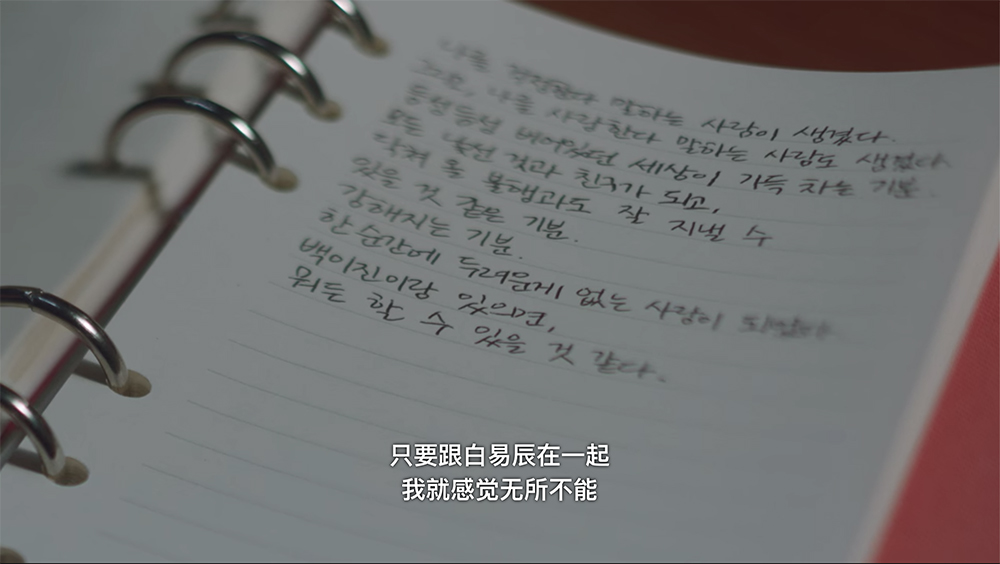 나를 걱정한다 말하는 사람이 생겼다.
그are, 나를 사랑한다 말하는 사람도 생겼다.
듬성듬성 비어있던 세상이 가득 차는 기분.
모든 낯선 것과 친구가 되고,
닥쳐 올 불행과도 잘 지낼 수
있을 것 같은 기분.
강해지는 기분.
한순간에 두려운게 없는 사람이 되었다.
백이진이랑 있으면,
뭐든 할 수 있을 것 같다.
只要跟白易辰在一起
我就感觉无所不能